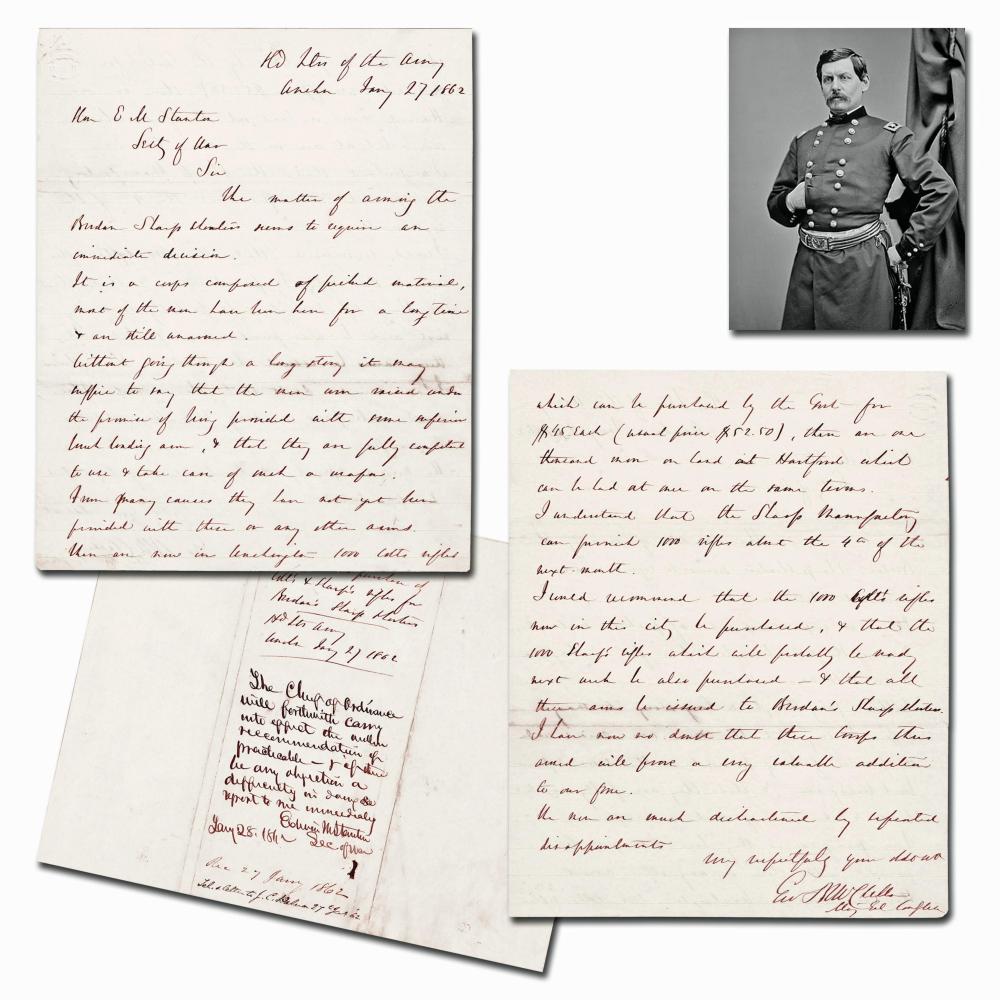 Hd Qtrs of the Army
Washn Jany 27 1862
Hon E M Stanton
Secty of War
Sir
The matter of arming the
Berdan Sharp Shooters seems to require an
immediate decision.
It is a corps composed of picked material,
most of the men have been here for a long time
& are still unarmed.
Without going through a long story it may
suffice to say that the men were raised under
the promise of being provided with some superior
breech loading arm, & that they are fully competent
to use & take care of such a weapon.
From many causes they have not yet been
provided with these or any other arms.
There are now in Washington 1000 Colts rifles
which can be purchased by the Govt for
$45 each (usual price $52.50), there are one
thousand more on hand at Hartford which
can be had at once on the same terms.
I understand that the Sharps Manufactory
can furnish 1000 rifles about the 4th of the
next month.
I would recommend that the 1000 Colt's rifles
now in this city be purchased, & that the
1000 Sharp's rifles which will probably be ready
next week be also purchased — & that all
these arms be issued to Berdan's Sharp shooters.
I have now no doubt that these Corps thus
armed will prove a very valuable addition
to our force.
The men are much disheartened by repeated
disappointments
Very respectfully your obdt svt
Geo B McClellan
Maj Genl Comdg
purchase of
Colt's & Sharp's rifles for
Berdan's Sharp shooters
Hd Qtrs Army
Washn Jany 27 1862
The Chief of Ordnance
will forthwith carry
into effect the within
recommendation if
practicable — & if there
be any objection or
difficulty in doing so
report to me immediately
Edwin M Stanton
Sec of War
Jany 28. 1862
Rec 27 Jany 1862